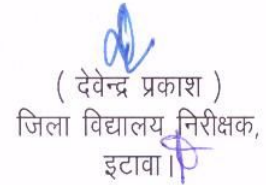 ( देवेन्द्र प्रकाश )
जिला विद्यालय निरीक्षक,
इटावा।